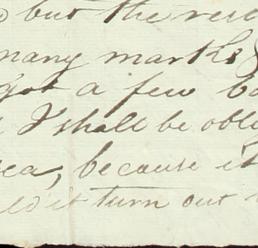 but the
many marks
got a few
I shall be
because it
turn out